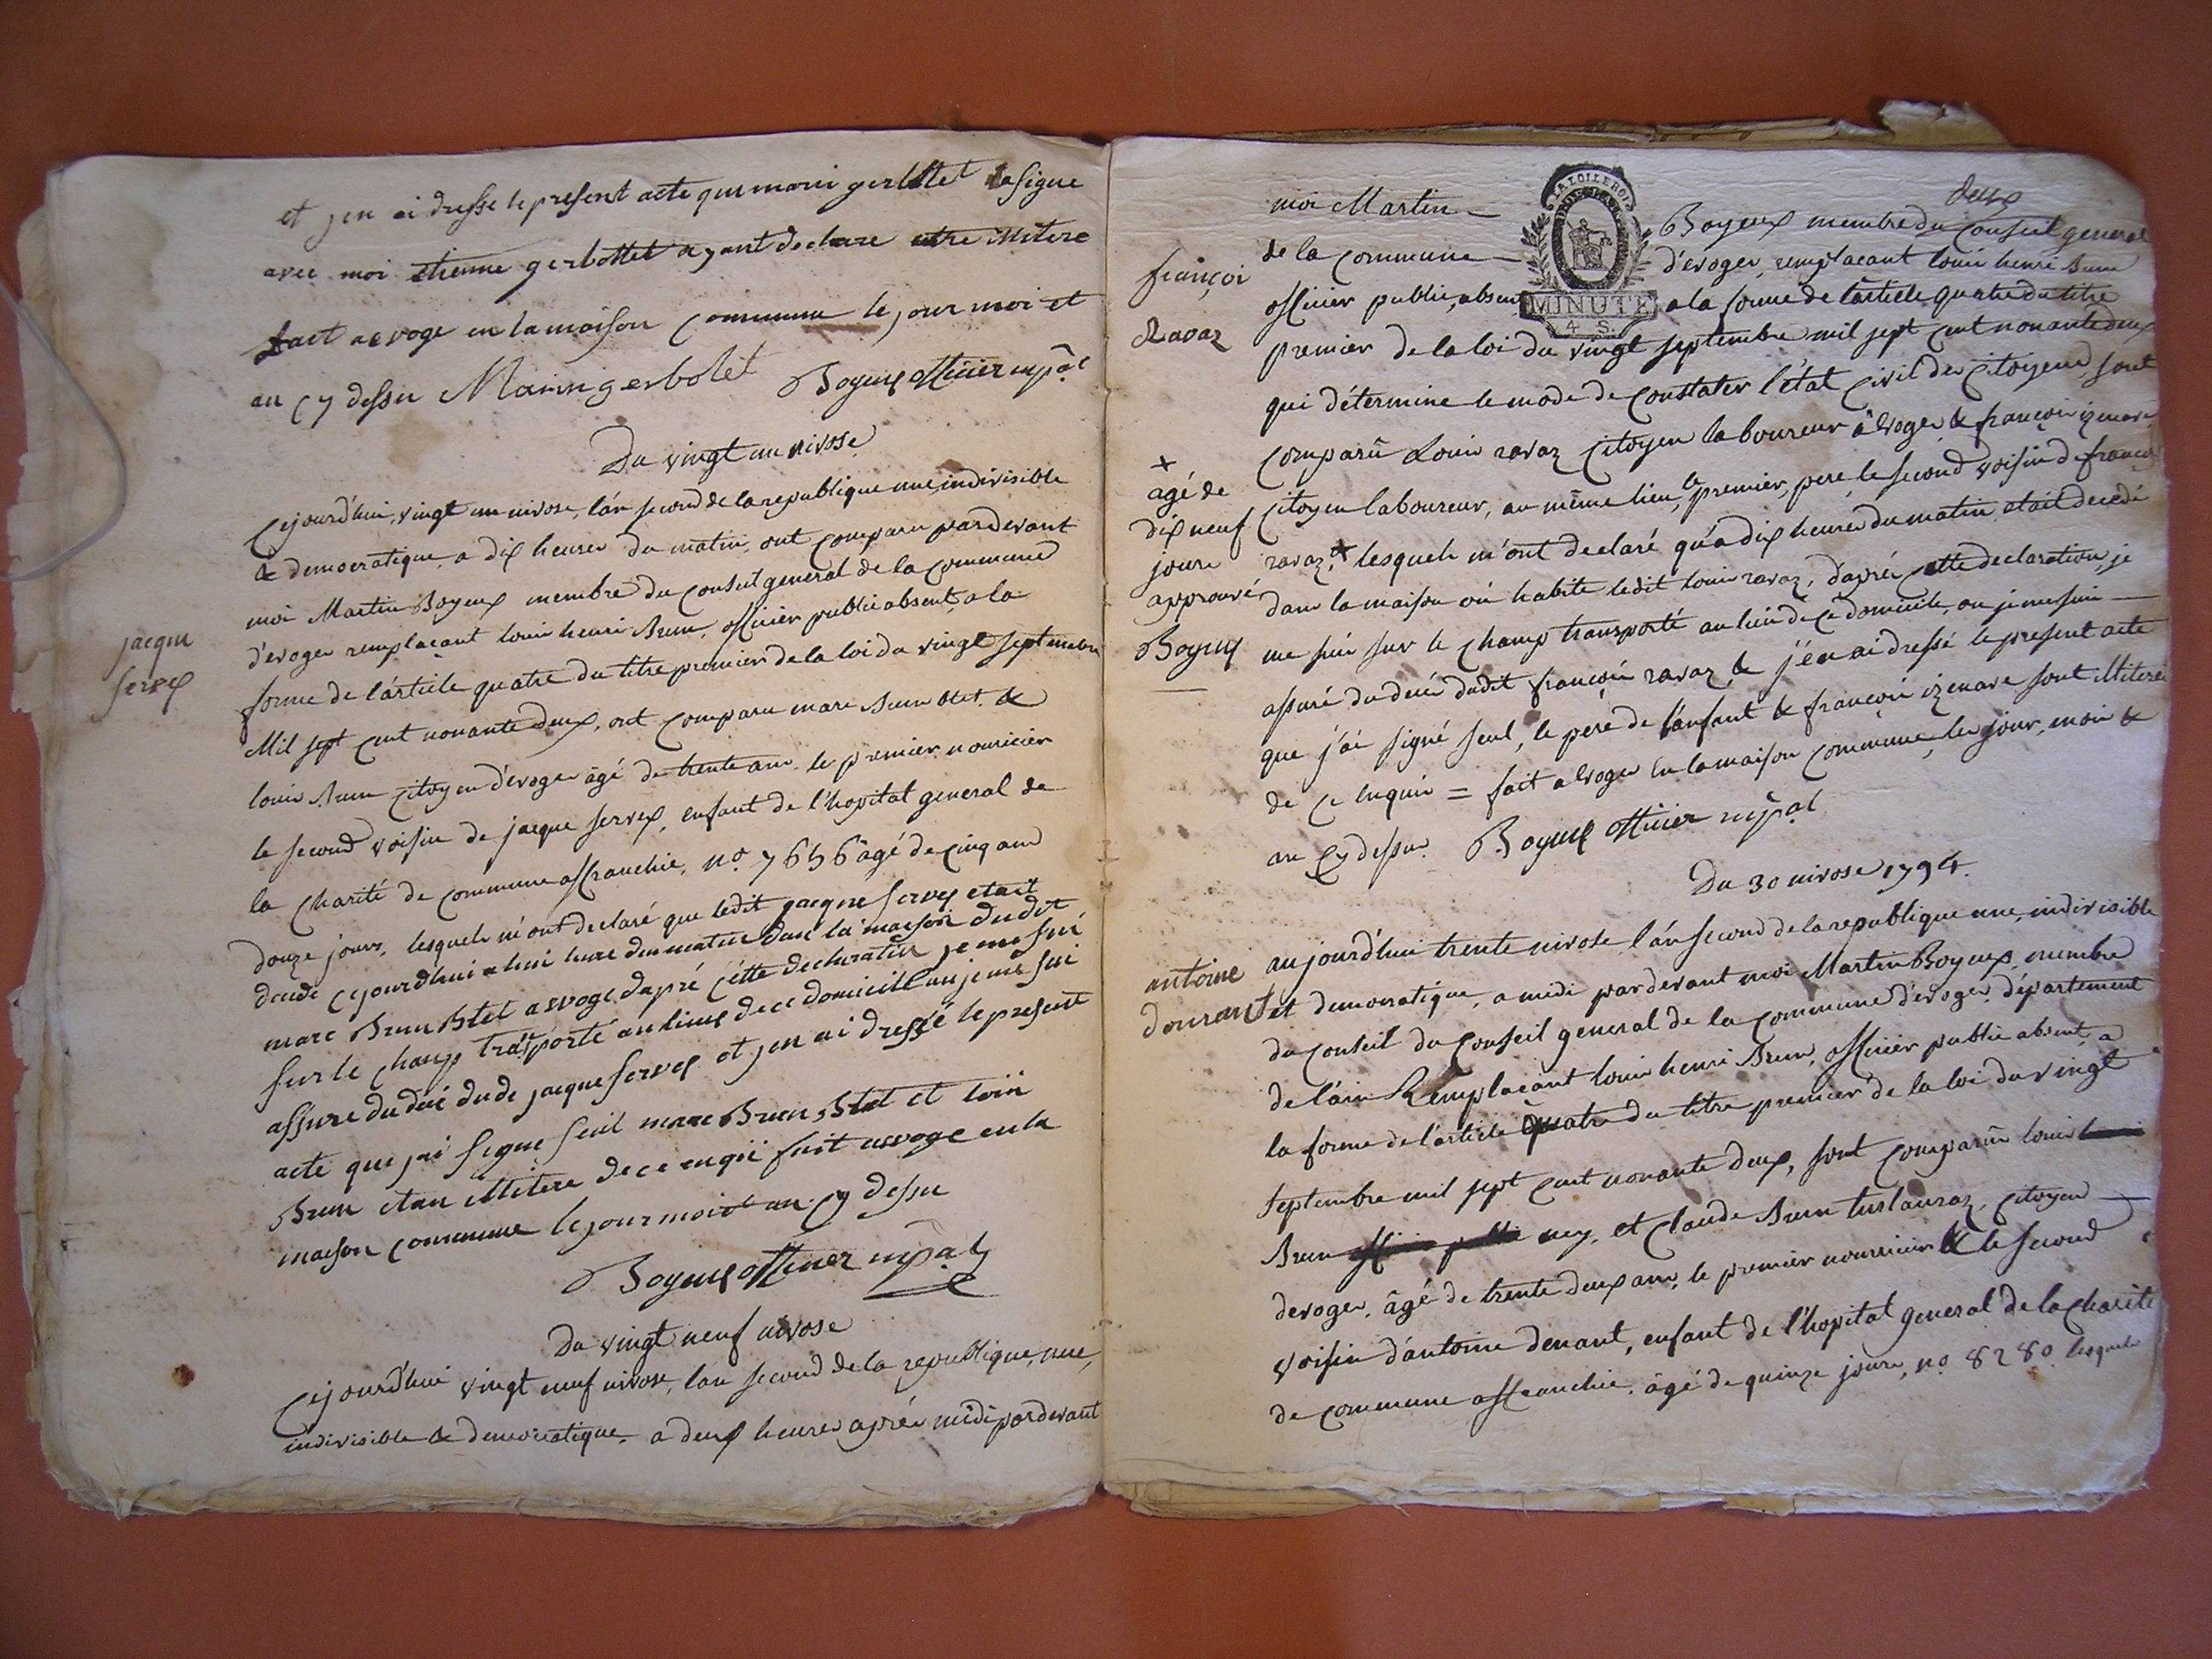 et jen ai dresse le present acte que marin gerbollet a signe
avec moi etienne gerbottet ayant declare etre ilitere
fait a evoge en la maison commune le jour moi et
an cy dessu Marin gerbolet Boyeux officier mpal
Du vingt un nivose
jacque
servex
Cejourd'hui, vingt un nivose, l'an second de la republique une, indivisible
& democratique, a dix heures du matin, ont comparu pardevant
moi Martin Boyeux membre du conseil general de la commune
d'evoges remplaçant louis henri Brun, officier public absent, a la
forme de l'article quatre du titre premier de la loi du vingt septembre
Mil sept cent nonante deux, ont comparu marc Brun btet &
louis Brun citoyen d'evoges âgé de trente ans le premier nouricier
le second voisin de jacque servex, enfant de l'hopital general de
la charité de commune affranchie, no. 7656 âgé de cinq ans
douze jours, lesquels m'ont declaré que ledit jacque servex etait
decede cejourd'hui a huit heure du matin dans la maison dudit
marc Brun Btet a evoge, dapré cette declaration je me sui
sur le champ transporté au lieux de ce domicille ou je me sui
assure du déci dudi jacque servex et jen ai dressé le present
acte que jai signe seul marc Brun Btet et loui
Brun etan ilitere de ce enqui fait a evoge en la
maison commune le jour moi et an cy dessu
Boyeux officier mpal
Du vingt neuf nivose
Cejourd'hui vingt neuf nivose, l'an second de la republique, une,
indivisible & democratique, a deux heures après midi pardevant
deux
françoi
Ravaz
LA LOI LE ROI
MINUTE
4 S.
moi Martin Boyeux membre du conseil general
de la commune d'evoges, remplaçant louis henri Brun
officier public, absent a la forme de l'article quatre du titre
premier de la loi du vingt septembre mil sept cent nonante deux
qui détermine le mode de constater l'état civil des citoyens sont
comparû Louis ravaz citoyen laboureur à Evoges & françois izenave
citoyen laboureur, au même lieu, le premier, pere, le second voisin de françois
ravaz, + lesquels m'ont declaré qu'à dix heures du matin etait decedé
dans la maison où habite ledit louis ravaz, d'après cette declaration, je
me suis sur le champ transporté au lieu de ce domicile, ou je me suis
assuré du deces dudit françois ravaz, & j'en ai dressé le present acte
que j'ai signé seul, le pere de l'enfant & françois izenave sont iliteré
de ce enquis = fait a Evoges en la maison commune, les jour, mois &
an cy dessus. Boyeux officier mpal
+
agé de
dix neuf
jours
approuvé
Boyeux
Du 30 nivose 1794.
antoine
dourant
aujourd'hui trente nivose l'an second de la republique une, indivisible
et democratique, a midi pardevant moi Martin Boyeux, membre
du conseil du Conseil general de la commune d'evoges, département
de l'ain Remplaçant louis henri Brun, officier public absent, a
la forme de l'article quatre du titre premier de la loi du vingt
septembre mil sept cent nonante deux, sont comparûs louis
Brun ney, et Claude Brun tuslauraz, citoyens
d'evoges, âgé de trente deux ans, le premier nourricier & le second
voisin d'antoine denant, enfant de l'hopital general de la charité
de commune affranchie, âgé de quinze jours, no. 8280 lesquels